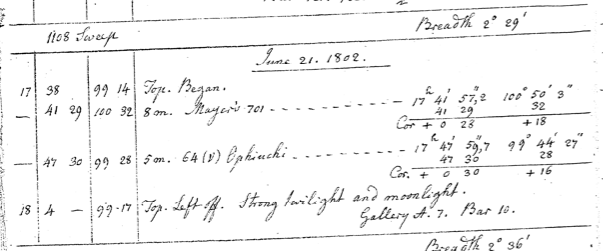 1108 Sweep
Breadth 2° 29'
June 21. 1802.
17 38 99 14 Top. Began.
— 41 29 100 32 8 m. Mayer's 701 - - - - - - - - - - 17ʰ 41' 57",2 100° 50' 3"
41 29 32
Cor + 0 28 + 18
— 47 30 99 28 5 m. 64 (ν) Ophiuchi - - - - - - - - - - 17ʰ 47' 59",7 99° 44' 27"
47 30 28
Cor. + 0 30 + 16
18 4 — 99-17 Top. Left off. Strong twilight and moonlight.
Gallery A. 7. Bar 10.
Breadth 2° 36'